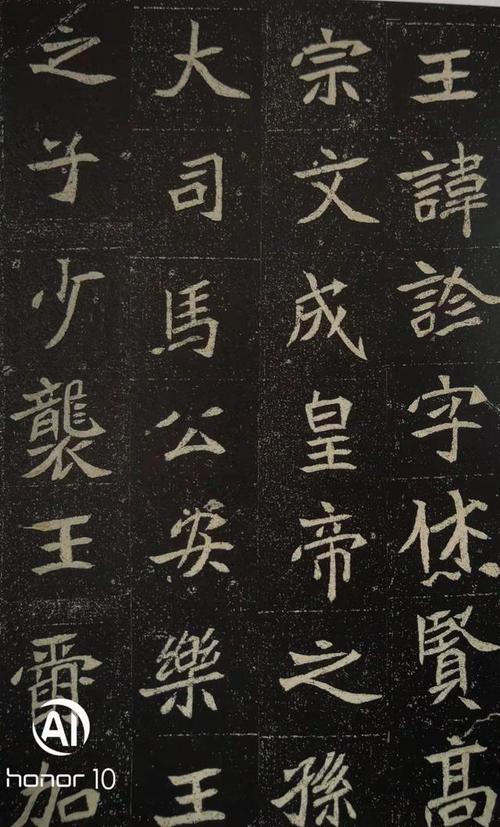 王諱診字休賢高
宗文成皇帝之孫
大司馬公安樂王
之子少襲王爵加
AI
honor 10